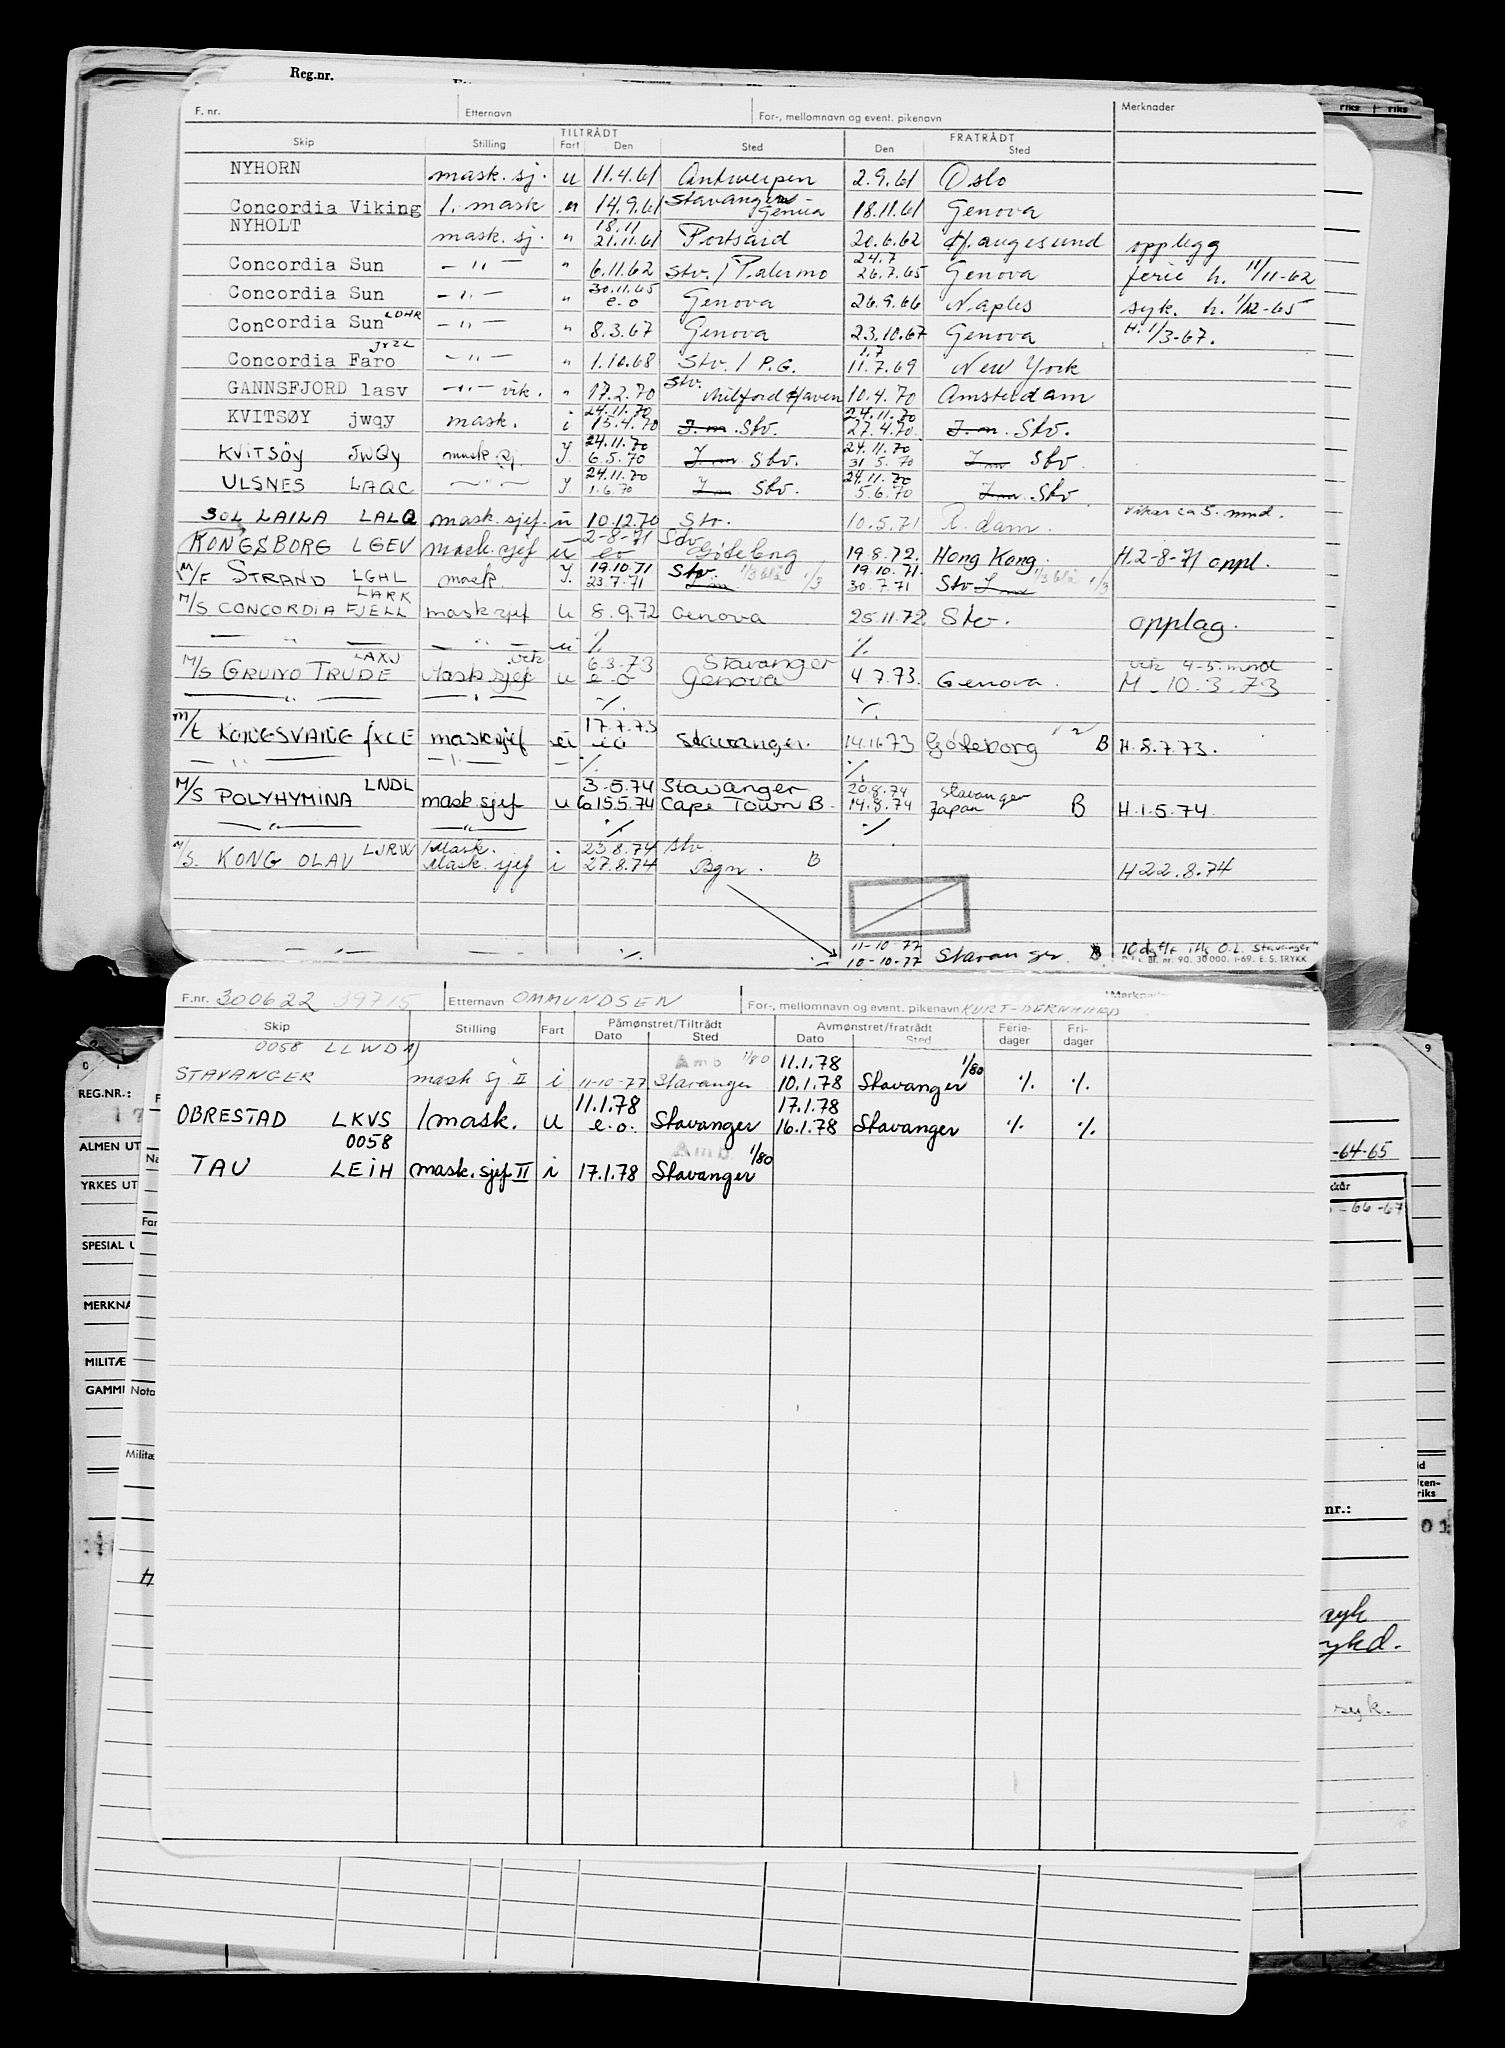 Reg.nr.
F. nr. Etternavn For-, mellomnavn og event. pikenavn Merknader
TILTRÅDT FRATRÅDT
Skip Stilling Fart Den Sted Den Sted
NYHORN mask. sj. u 11.4.61 Antwerpen 2.9.61 Oslo
Concordia Viking 1. mask " 14.9.61 Stavanger Genua 18.11.61 Genova
18.11
NYHOLT mask. sj. " 21.11.61 Portsaid 20.6.62 Haugesund opplegg
24.7
Concordia Sun - " - " 6.11.62 Stv. / Palermo 26.7.65 Genova ferie h. 11/11-62
30.11.65
Concordia Sun - " - " e.o Genova 26.9.66 Naples syk. h. 1/12-65
Concordia Sun LDHR - " - " 8.3.67 Genova 23.10.67 Genova H. 1/3-67.
jrzl 1.7
Concordia Faro - " - " 1.10.68 Stv. / P.G. 11.7.69 New York
GANNSFJORD lasv - " - vik. " 17.2.70 Stv. Milford Haven 10.4.70 Amsterdam
24.11.70 24.11.70
KVITSØY jwqy mask. i 15.4.70 I.m. Stv. 27.4.70. I.m. Stv.
24.11.70 24.11.70
KVITSÖY JWQY mask. sj. I 6.5.70 I.m. Stv. 31.5.70 I.m. Stv.
24.11.70 24.11.70
ULSNES LAQC - " - I 1.6.70 I.m. Stv. 5.6.70 I.m. Stv
SOL LAILA LALQ mask. sjef. u 10.12.70 Stv. 10.5.71 R.dam. vikar ca 5. mnd.
2-8-71 Stv
KONGSBORG LGEV mask. sjef u eo Göteborg 19.8.72. Hong Kong. H.2-8-71 oppl.
19.10.71 Stv. 1/3 blå 1/3 19.10.71. 1/3 blå 1/3
M/F STRAND LGHL mask I. 23.7.71 I.m 30.7.71 Stv I.m
LARK
M/S CONCORDIA FJELL mask sjef u 8.9.72 Genova 25.11.72 Stv. opplag.
— " — — " — u ٪ ٪
LAXJ vik 6.3.73 Stavanger vik 4-5. mnd
M/S GRUNO TRUDE Mask.sjef u e-o Genova 4 7.73. Genova. M. 10.3.73
— " — — " — ٪. ٪.
17.7.73
M/T KONGSVANG jxce mask sjef u eo Stavanger. 14.11.73 Göteborg B H.8.7.73.
— " — — " — — ٪. ٪.
LNDL 3-5.74 Stavanger 20.8.74 Stavanger
M/S POLYHYMINA mask sjef u 15.5.74 Cape Town B. 19.8.74 Japan B H.1.5.74.
— " — — " — ٪ ٪
1 Mask. 23.8.74 Stv.
M/S. KONG OLAV LJRW Mask. sjef i 27.8.74 Bgn. B H22.8.74
11-10-77
— " — — " — ٪. 10-10-77 Stavanger. B. 10 dg f/f ifg O.L. "Stavanger"
Bl. nr. 90. 30 000. 1-69. E. S. TRYKK
F.nr. 300622 39715 Etternavn OMMUNDSEN For-, mellomnavn og event. pikenavn KURT-BERNHARD
Skip Stilling Fart Påmønstret/Tiltrådt Avmønstret/fratrådt Ferie-dager Fri-dager
Dato Sted Dato Sted
0058 LLWD 1) Amb 1/80 11.1.78 1/80
STAVANGER mask sj II i 11-10-77 Stavanger 10.1.78 Stavanger ٪. ٪.
11.1.78 17.1.78
OBRESTAD LKVS 1 mask. u e.o. Stavanger 16.1.78 Stavanger ٪. ٪.
0058 Amb. 1/80
TAU LEIH mask. sjef II i 17.1.78 Stavanger
REG.NR.:
ALMEN UT
YRKES UT
SPESIAL U
MERKNA
MILITÆ
GAMME
Nota
Militæ
-64-65
-66-67
riks riks
nr.:
syk
sykd.
syk.